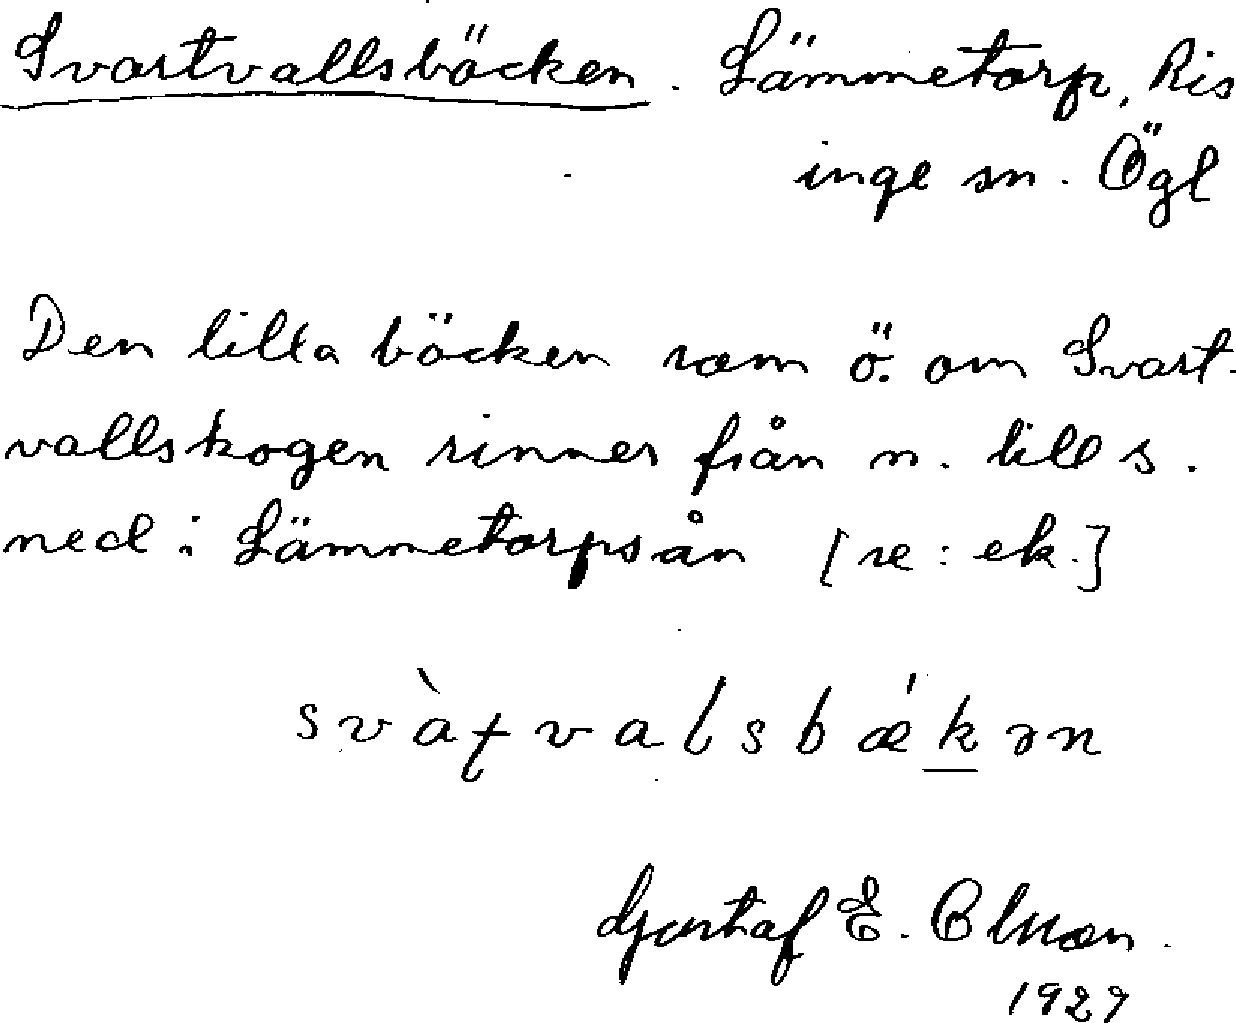 Svartvallsbäcken. Lämmetorp, Ris
inge sn. Ögl
Den lilla bäcken som ö. om Svart-
vallskogen rinner från n. till s.
ned i Lämmetorpsån [se: ek.]
svàƭvalsbǽkən
Gustaf E.
1929